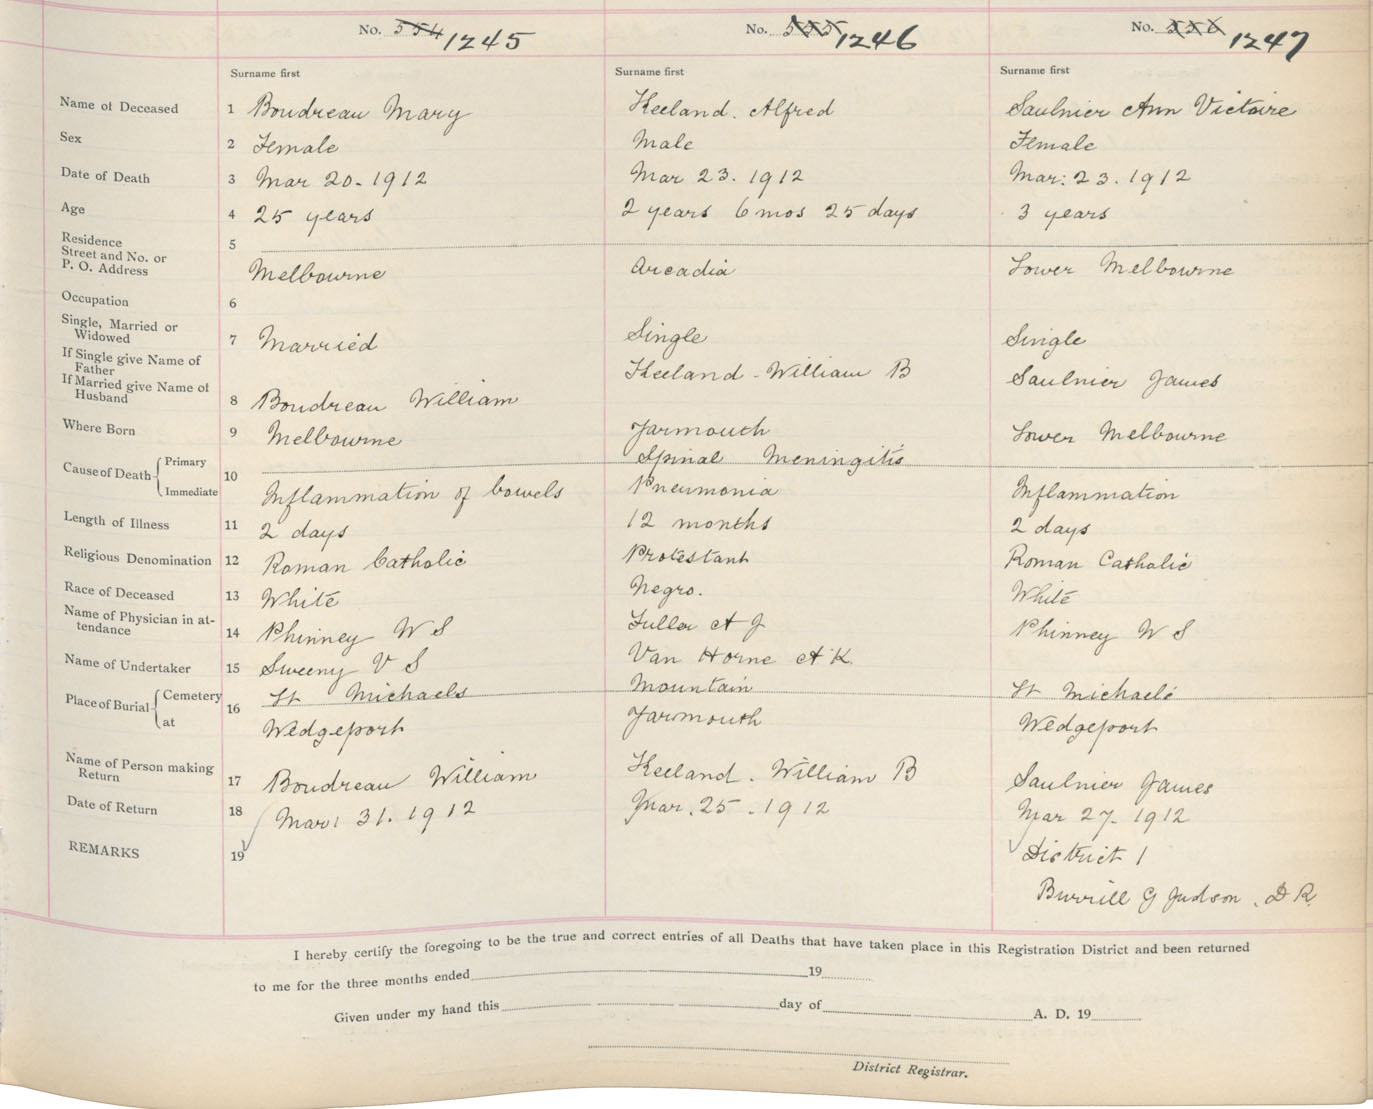 No. 554 1245 No. 555 1246 No. 556 1247
Surname first Surname first Surname first
Name of Deceased 1 Boudreau Mary Keeland. Alfred Saulnier Ann Victoire
Sex 2 Female Male Female
Date of Death 3 Mar 20. 1912 Mar 23. 1912 Mar: 23. 1912
Age 4 25 years 2 years 6 mos 25 days 3 years
Residence 5
Street and No. or
P. O. Address Melbourne Arcadia Lower Melbourne
Occupation 6
Single, Married or
Widowed 7 Married Single Single
If Single give Name of
Father Keeland - William B Saulnier James
If Married give Name of
Husband 8 Boudreau William
Where Born 9 Melbourne Yarmouth Lower Melbourne
Cause of Death Primary 10 Spinal Meningitis
Immediate Inflammation of bowels Pneumonia Inflammation
Length of Illness 11 2 days 12 months 2 days
Religious Denomination 12 Roman Catholic Protestant Roman Catholic
Race of Deceased 13 White Negro. White
Name of Physician in at-
tendance 14 Phinney W S Fuller A J Phinney W S
Name of Undertaker 15 Sweeny V S Van Horne A K.
Place of Burial Cemetery 16 St Michaels Mountain St Michaels
at Wedgeport Yarmouth Wedgeport
Name of Person making
Return 17 Boudreau William Keeland. William B Saulnier James
Date of Return 18 Mar: 31. 1912 Mar. 25. 1912 Mar 27. 1912
REMARKS 19 District 1
Burrill G Judson. D R.
I hereby certify the foregoing to be the true and correct entries of all Deaths that have taken place in this Registration District and been returned
to me for the three months ended 19
Given under my hand this day of A. D. 19
District Registrar.